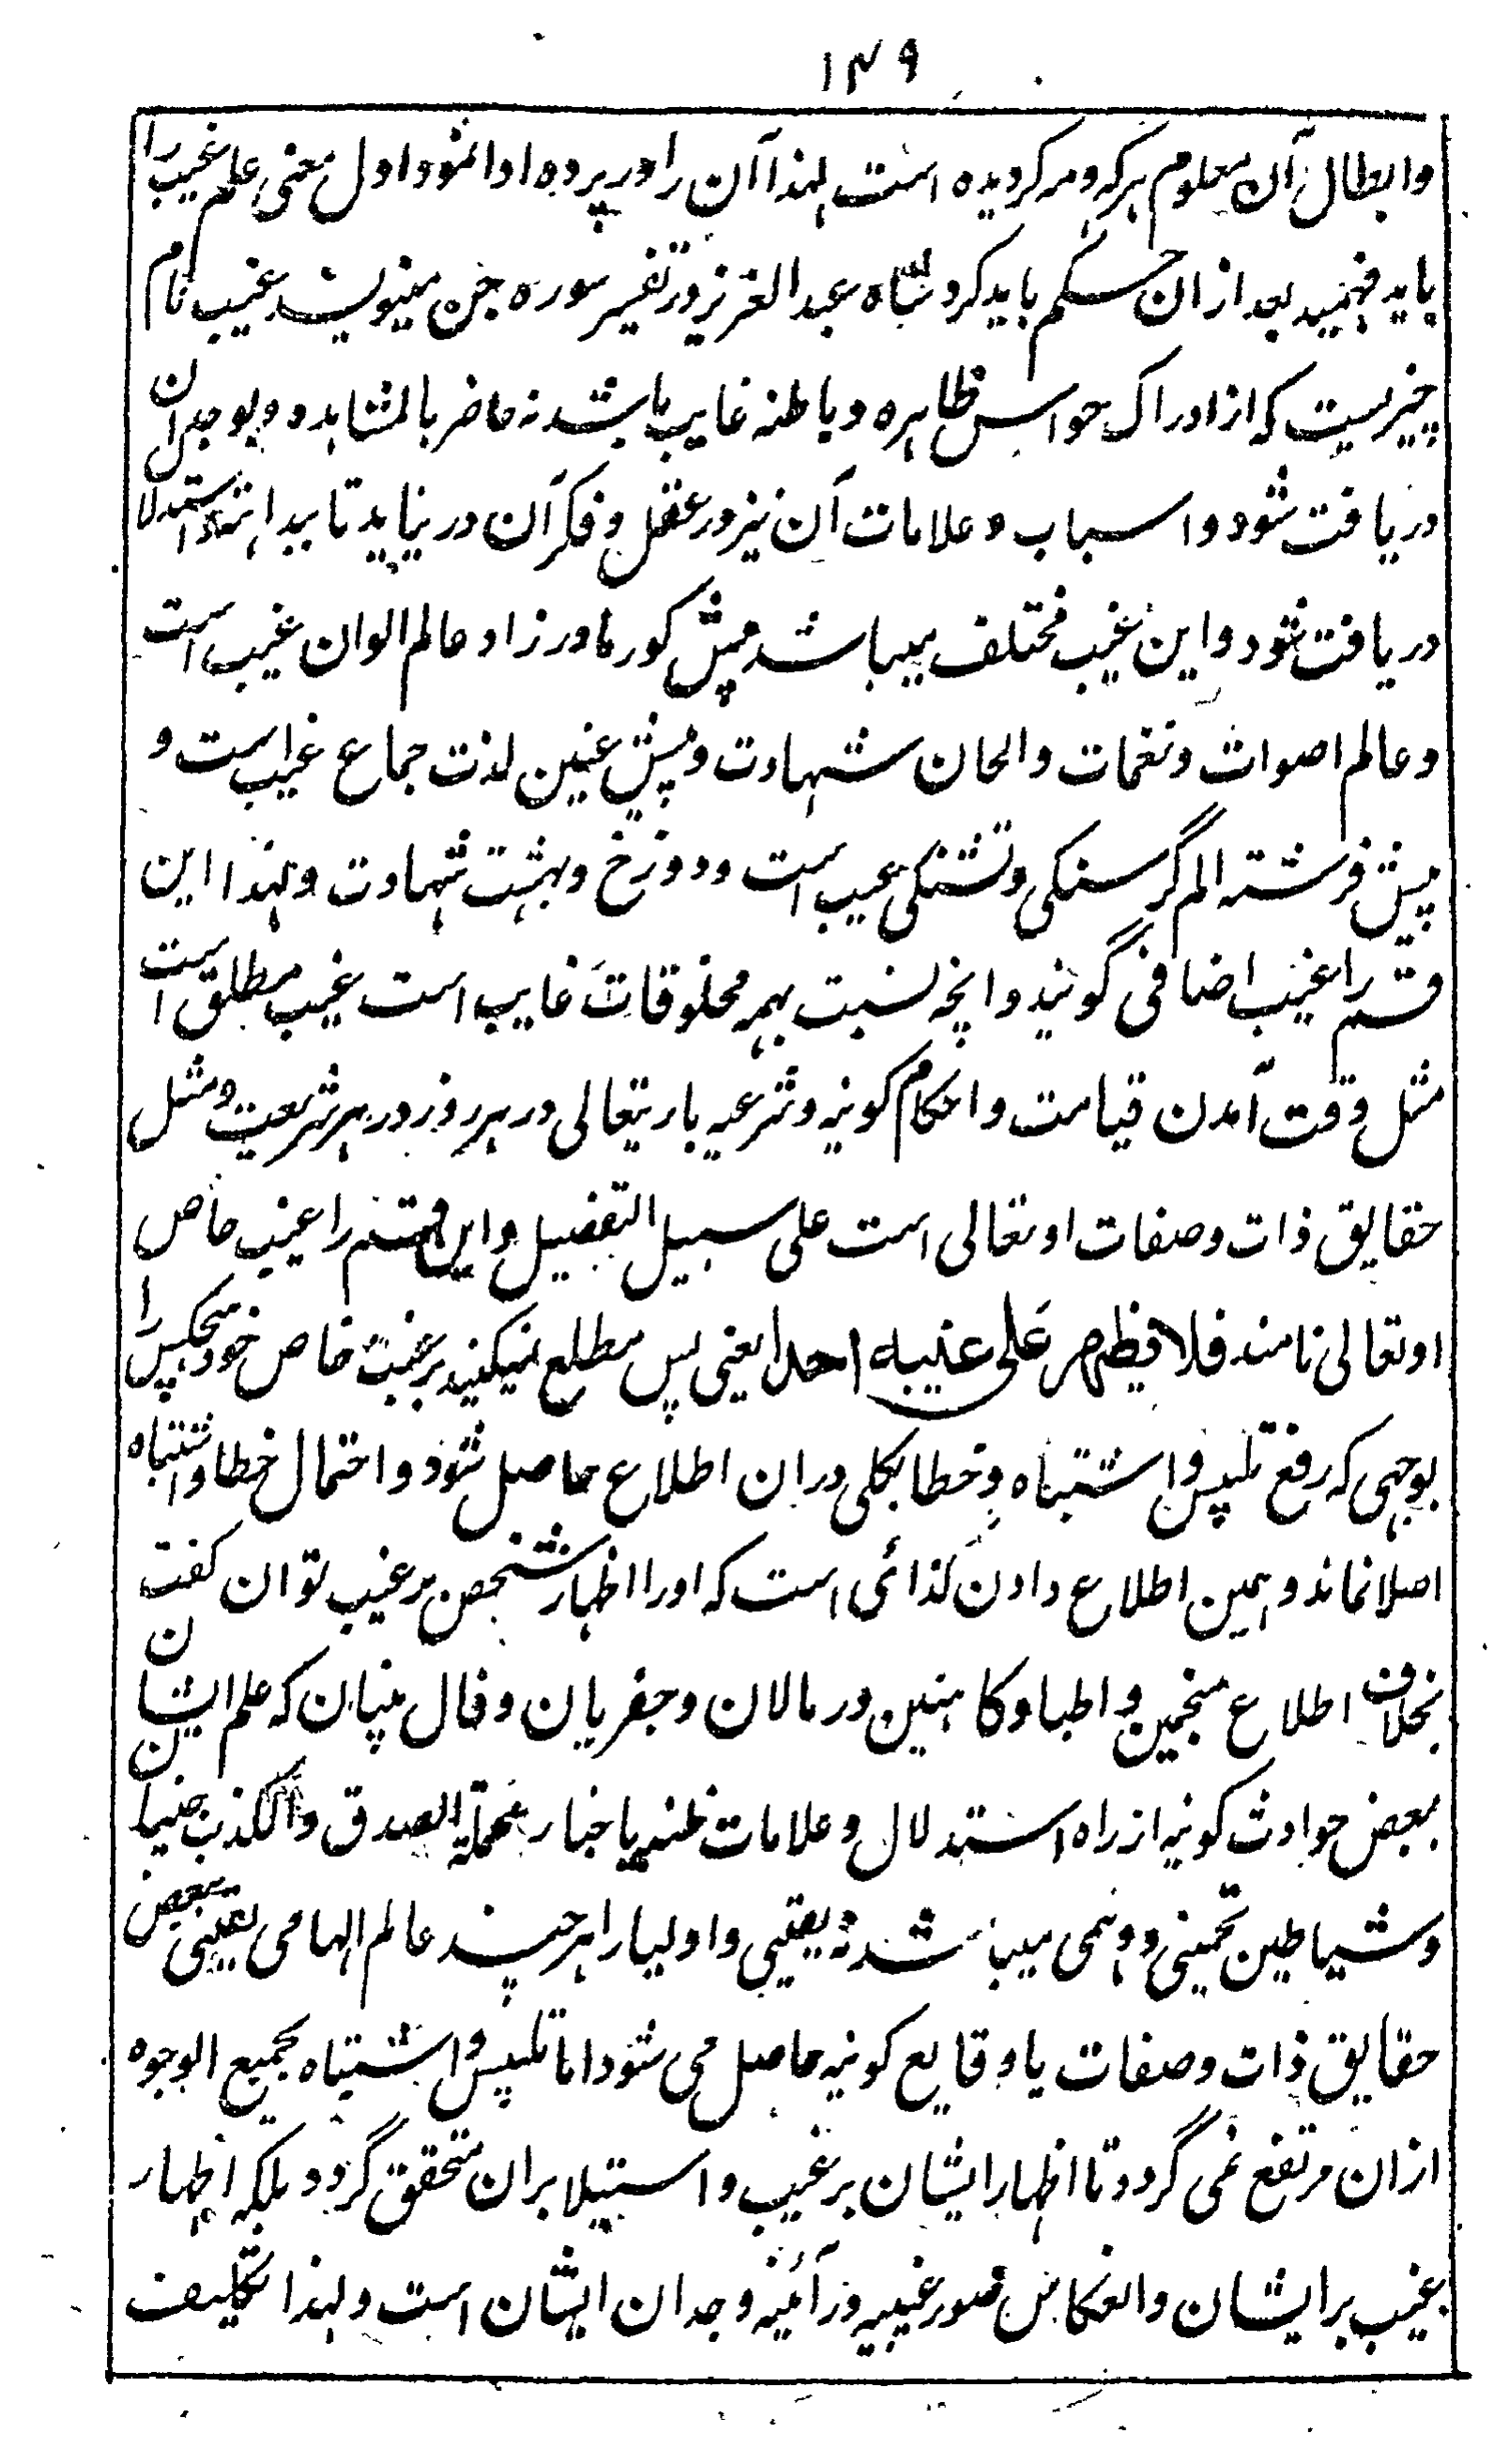 ١٤٩
و ابطال آن معلوم هر که و مه گردیده است لهذا آن را در پرده ادا نمود اول معنی علم غیب را
باید فهمید بعد از ان حکم باید کرد شاه عبد العزیز در تفسیر سوره جن مینویسد غیب نام
چیزیست که از ادراک حواس ظاهره و باطنه غایب باشد نه حاضر با لمشاهده و بوجدان
دریافت شود و اسباب و علامات آن نیز در عقل و فکر آن در نیاید تا ببداهته و استدلا
دریافت شود و این غیب مختلف میباشد پیش کور مادرزاد عالم الوان غیب است
و عالم اصوات و نغمات و الحان شهادت و پیش عنین لذت جماع غیب است و
پیش فرشته الم گرسنکی و تشنکی غیب است و دوزخ و بهشت شهادت و لهذا این
قسم را غیب اضافی گویند و انچه نسبت بهمه مخلوقات غایب است غیب مطلق است
مثل وقت آمدن قیامت و احکام کونیه و شرعیه باریتعالی در هر روز در هر شریعت و مثل
حقایق ذات و صفات او تعالی است علی سبیل التفصیل و این قسم را غیب خاص
او تعالی نامند فلا یظهر علی غیبه احدا یعنی پس مطلع نمیکند بر غیب خاص خود هیچکس را
بوجهی که رفع تلبیس و اشتباه و خطا بکلی دران اطلاع حاصل شود و احتمال خطا و اشتباه
اصلا نماند و همین اطلاع دادن کذائی است که اورا اظهار شخص بر غیب توان گفت
بخلاف اطلاع منجمین و اطبا و کاهنین و رمالان و جفریان و فال بینان که علم ایشان
ببعض حوادث کونیه از راه استدلال و علامات ظنیه یا اخبار محتملة الصدق و الکذب جنیان
و شیاطین تخمینی و وهمی میباشد نه یقینی و اولیا را هر چند عالم الهامی یقینی ببعض
حقایق ذات و صفات یا وقایع کونیه حاصل می شود اما تلبیس و اشتباه بجمیع الوجوه
ازان مرتفع نمی گردد تا اظهار ایشان بر غیب و استیلا بران متحقق گردد بلکه اظهار
غیب بر ایشان و انعکاس صور غیبیه در آئینه وجدان ایشان است و لهذا تکلیف